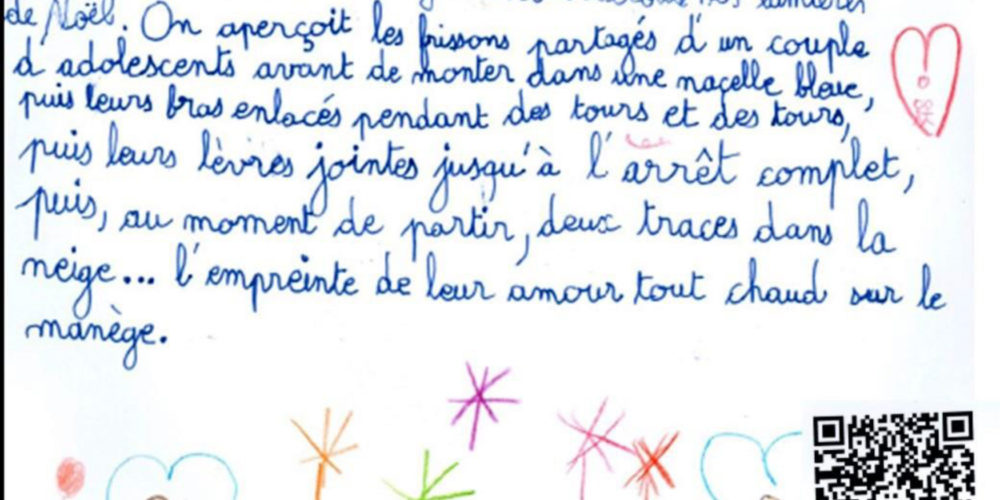 de Noël. On aperçoit les frissons partagés d'un couple
d'adolescents avant de monter dans une nacelle bleue,
puis leurs bras enlacés pendant des tours et des tours,
puis leurs lèvres jointes jusqu'à l'arrêt complet,
puis, au moment de partir, deux traces dans la
neige... l'empreinte de leur amour tout chaud sur le
manège.